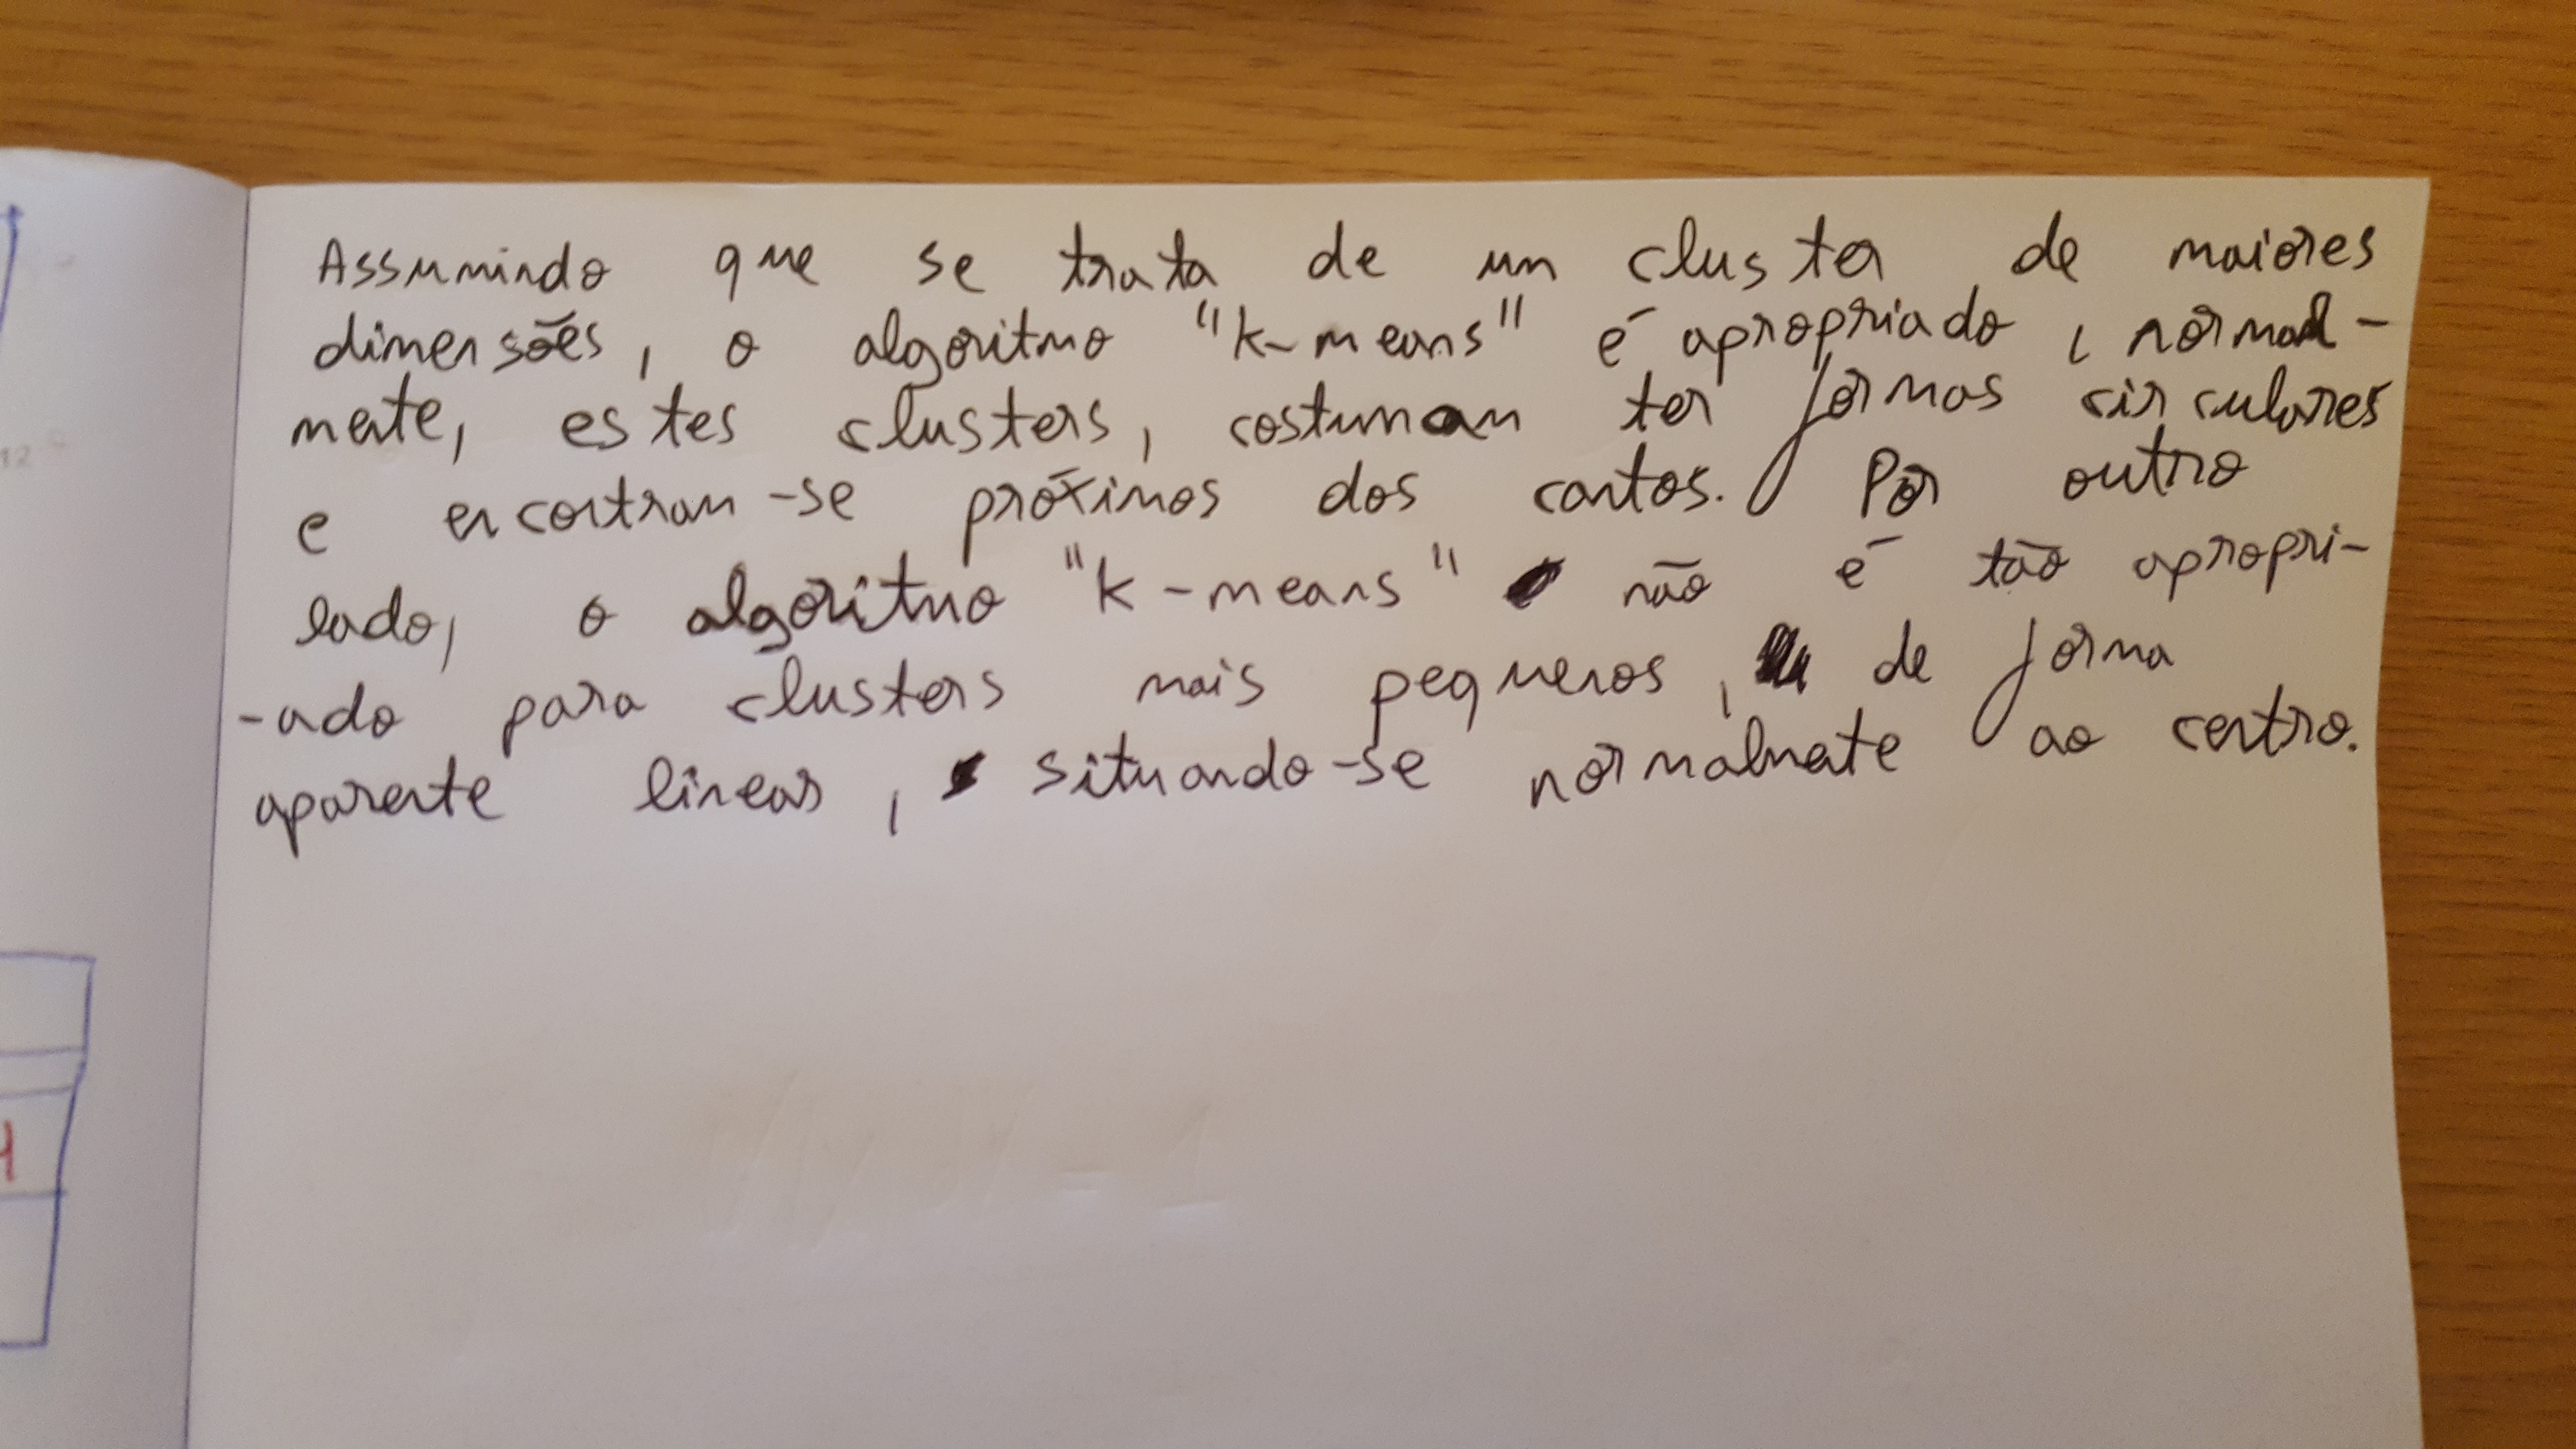 Assumindo que se trata de um cluster de maiores
dimensões, o algoritmo "k-means" é apropriado, normal-
mente, estes clusters, costumam ter formas circulares
e encontram-se próximos dos cantos. Por outro
lado, o algoritmo "k-means" não é tão apropri-
-ado para clusters mais pequenos, de forma
aparente linear, situando-se normalmente ao centro.
12
4